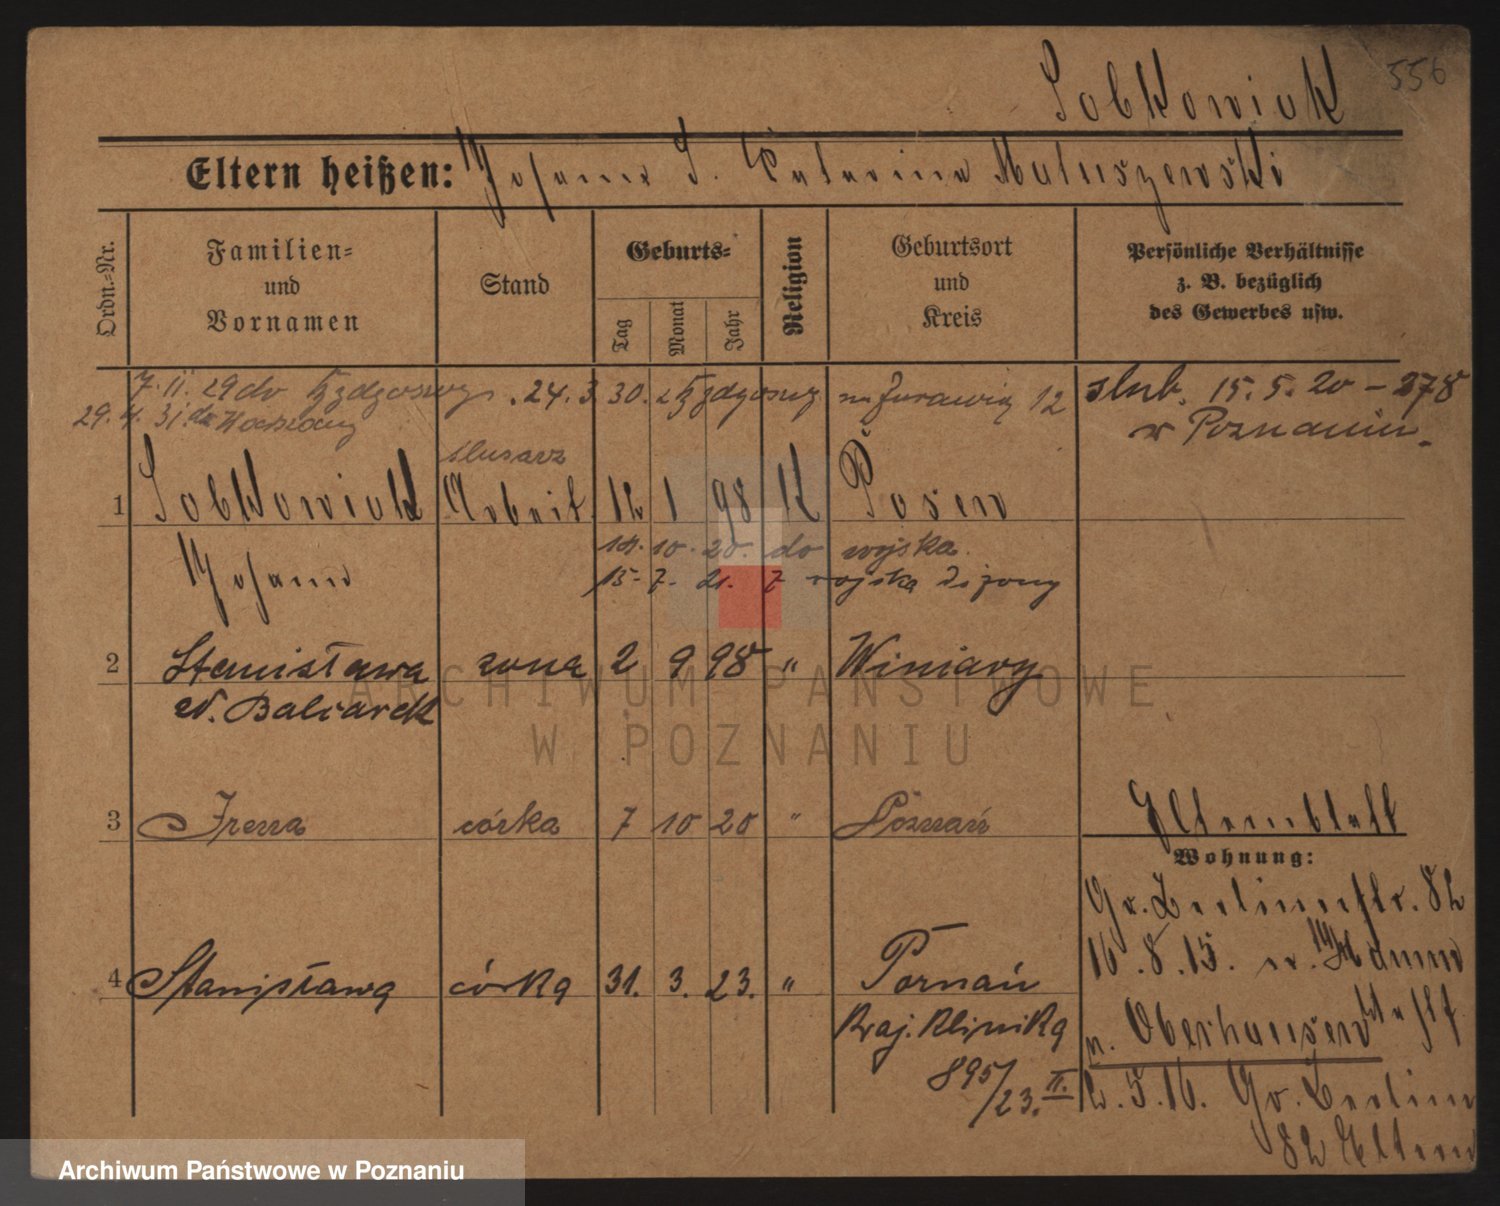 556
Sobkowiak
Eltern heißen: Johann S. Katarina Matuszewski
Ordn.-Nr.
Familien- und Vornamen
Stand
Geburts-
Tag
Monat
Jahr
Religion
Geburtsort und Kreis
Persönliche Verhältnisse z. B. bezüglich des Gewerbes usw.
7. II. 29 do Bydgoszczy. 24. 3. 30. z Bydgoszczy na Żurawią 12
29. 4. 31. do Warszawy
ślub. 15. 5. 20 – 278
w Poznaniu.
ślusarz
1 Sobkowiak Arbeit. 12 1 98 K Posen
Johann
14. 10. 20. do wojska.
15. 7. 21. z wojska
2 Stanisława żona 2 9 98 " Winiary
Balcarek
3 Irena córka 7 10 20 " Poznań
Elternblatt
Wohnung:
Gr. Berlinerstr. 82
16. 8. 15. n. Hamm
4 Stanisława córka 31. 3. 23. " Poznań
Kraj. Klinika
n. Oberhausen
895/23. II.
2. 5. 16. Gr. Berlin
82 Eltern
ARCHIWUM PAŃSTWOWE
W POZNANIU
Archiwum Państwowe w Poznaniu